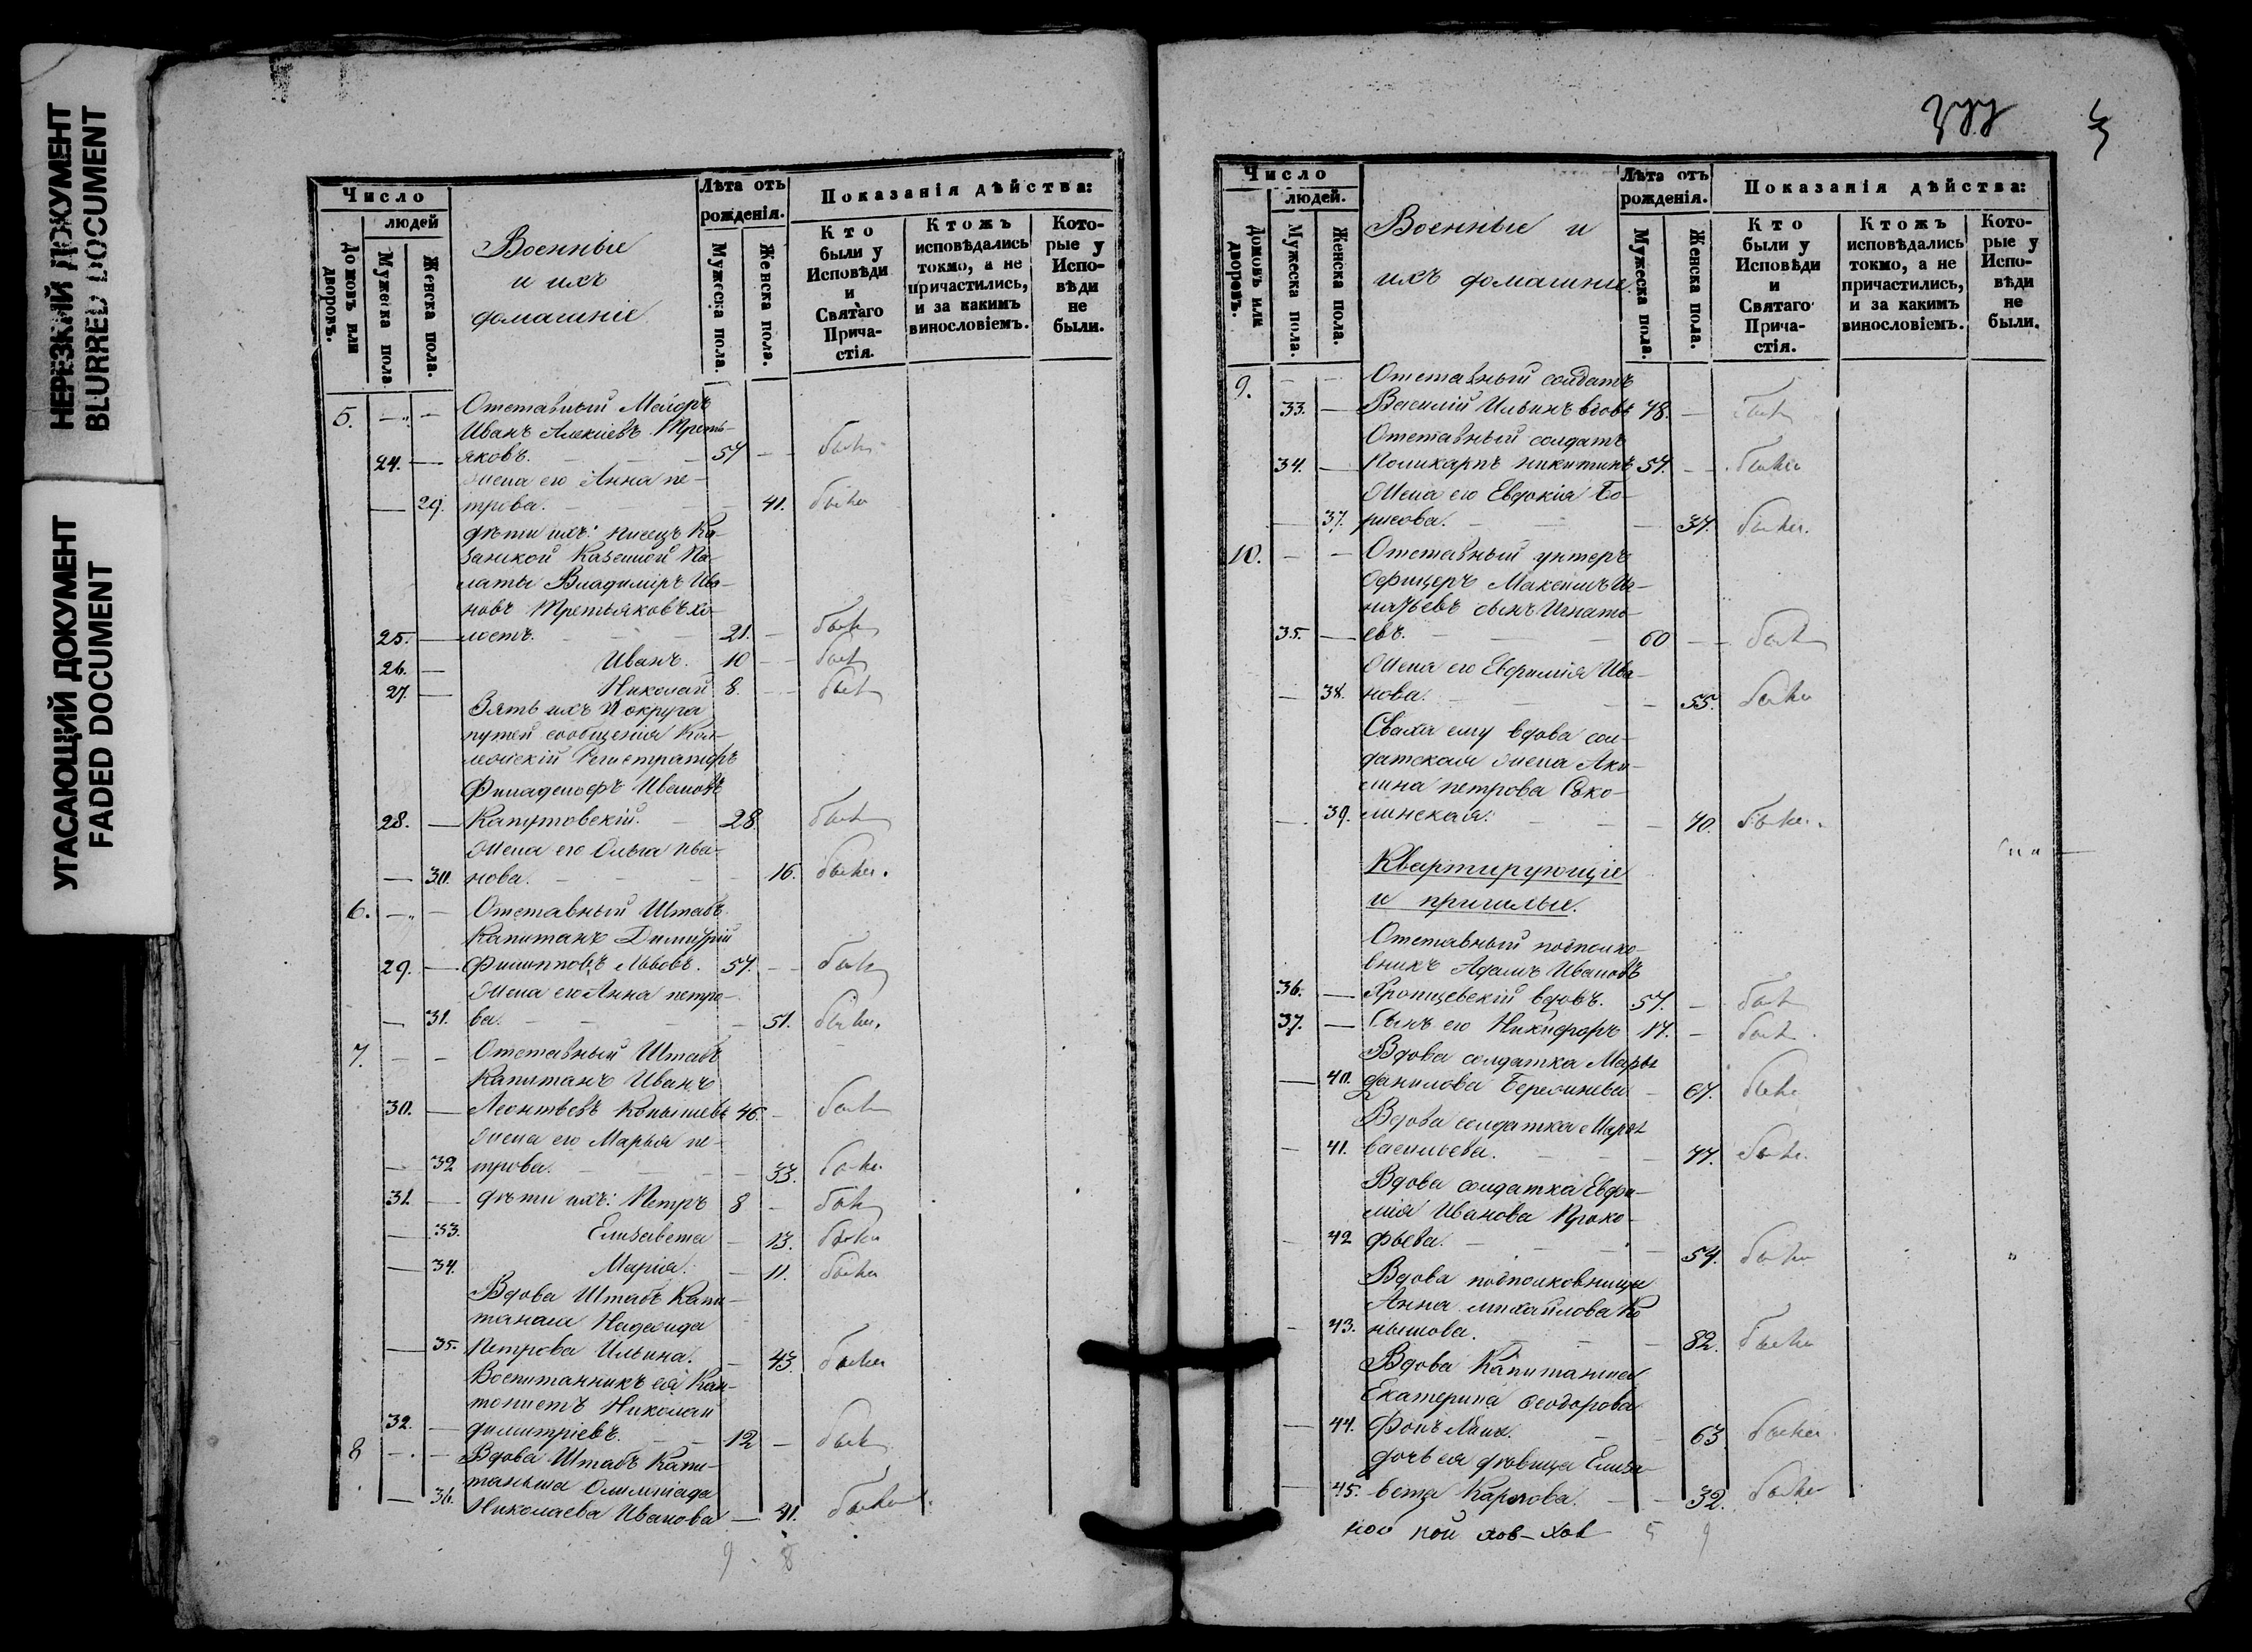 НЕРЕЗКИЙ ДОКУМЕНТ
BLURRED DOCUMENT
УГАСАЮЩИЙ ДОКУМЕНТ
FADED DOCUMENT
Число
людей
Домовъ или дворовъ.
Мужеска пола
Женска пола.
Военные
и ихъ
домашніе
Лѣта отъ
рожденія.
Мужеска пола.
Женска пола.
Показанія дѣйства:
Кто
были у
Исповѣди
и
Святаго
Прича-
стія.
Ктожъ
исповѣдались
токмо, а не
причастились,
и за какимъ
винословіемъ.
Кото-
рые у
Испо-
вѣди
не
были.
5. Отставный Маіоръ
Иванъ Алексіевъ Треть-
24. яковъ. 57 былъ
Жена его Анна пе-
29. трова. 41. была
дѣти ихъ: писецъ Ка-
занской Казенной Па-
латы Владиміръ Ива-
новъ Третьяковъ хо-
25. лостъ. 21. былъ
26. Иванъ. 10 былъ
27. Николай 8. былъ
Зять ихъ округа
путей сообщенія Кол-
лежскій Регистраторъ
Филаделофъ Ивановъ
28. 28. былъ
Жена его Ольга Ива-
30. нова. 16. была.
6. Отставный Штабъ
Капитанъ Димитрій
29. Филипповъ Львовъ. 57. былъ
Жена его Анна петро-
31. ва. 51. была.
7. Отставный Штабъ
Капитанъ Иванъ
30. Леонтьевъ 46. былъ
Жена его Марья пе-
32 трова. 33. была
31. дѣти ихъ: Петръ 8 былъ
33. Елизавета 13. была
34. Марія. 11. была
Вдова Штабъ Капи-
танша Надежда
35. Петрова Ильина. 43. была
Воспитанникъ ея Кан-
тонистъ Николай
32. димитріевъ. 12 былъ
8 Вдова Штабъ Капи-
танша Олимпіада
36. Николаева Иванова 41. была
9 8
Число
людей.
Домовъ или дворовъ.
Мужеска пола.
Женска пола.
Военные и
ихъ домашніе
Лѣта отъ
рожденія.
Мужеска пола.
Женска пола.
Показанія дѣйства:
Кто
были у
Исповѣди
и
Святаго
Прича-
стія.
Ктожъ
исповѣдались
токмо, а не
причастились,
и за какимъ
винословіемъ.
Кото-
рые у
Испо-
вѣди
не
были.
9. Отставный солдатъ
33. Василій Ильинъ вдовъ 78. былъ
Отставный солдатъ
34. Поликарпъ Никитинъ 57. былъ
Жена его Евдокія Бо-
37. рисова. 37. была.
10. Отставный унтеръ
Офицеръ Максимъ Иг-
натьевъ сынъ Игнать-
35. евъ. 60 былъ
Жена его Евфимія Ива-
38. нова. 55. была
Сваха ему вдова сол-
датская жена Аку-
лина петрова Соко-
39. линская. 70. была.
Квартирующіе
и пришлые.
Отставный подполко-
вникъ Адамъ Ивановъ
36. вдовъ. 57. былъ
37. Сынъ его Никифоръ 17. былъ.
Вдова солдатка Марья
40. данилова 67. была
Вдова солдатка Марья
41. васильева. 77. была.
Вдова солдатка Евфи-
мія Иванова Проко-
42 фьева. 54. была
Вдова подполковница
Анна михайлова Ко-
43. нышова. 82. была
Вдова Капитанша
Екатерина Феодорова
44. Фонъ 63. была.
дочь ея дѣвица Елиза-
45. бета Карлова. 32. была
5 9